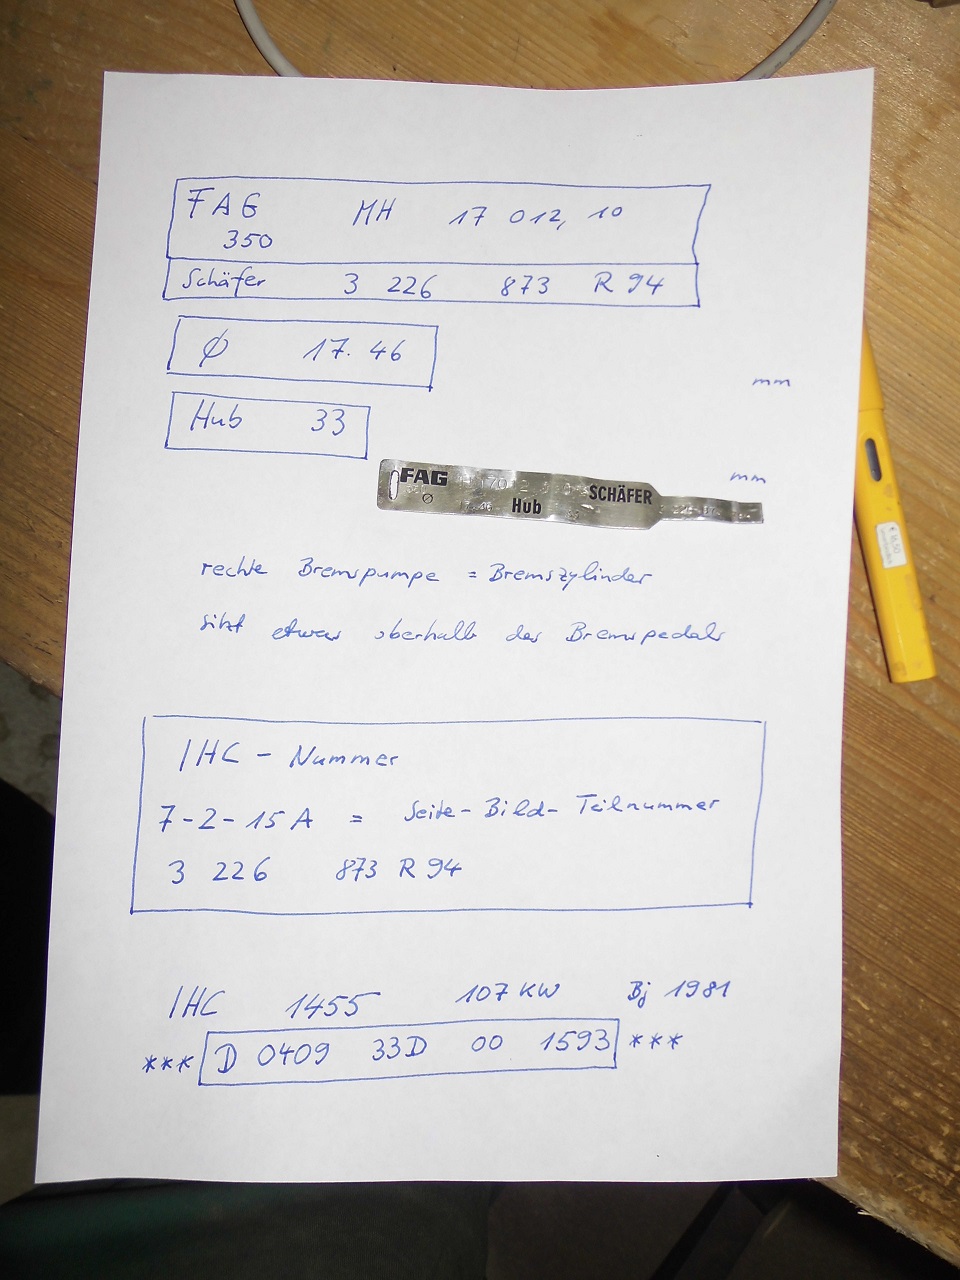 FAG MH 17 012, 10
350
Schäfer 3 226 873 R 94
Ø 17.46
mm
Hub 33
mm
FAG SCHÄFER
Ø Hub
rechte Bremspumpe = Bremszylinder
sitzt etwas oberhalb des Bremspedals
IHC - Nummer
7-2-15A = Seite-Bild-Teilnummer
3 226 873 R 94
IHC 1455 107 KW Bj 1981
*** D 0409 33D 00 1593 ***